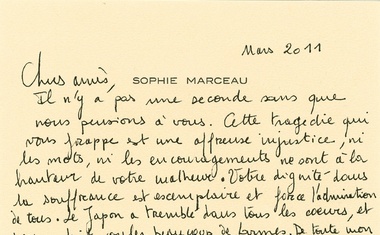 Mars 2011
Chers amis,
SOPHIE MARCEAU
Il n'y a pas une seconde sans que
nous pensions à vous. Cette tragédie qui
vous frappe est une affreuse injustice, ni
les mots, ni les encouragements ne sont à la
hauteur de votre malheur. Votre dignité dans
la souffrance est exemplaire et force l'admiration
de tous. Le Japon a tremblé dans tous les cœurs, et
beaucoup de larmes. De toute mon